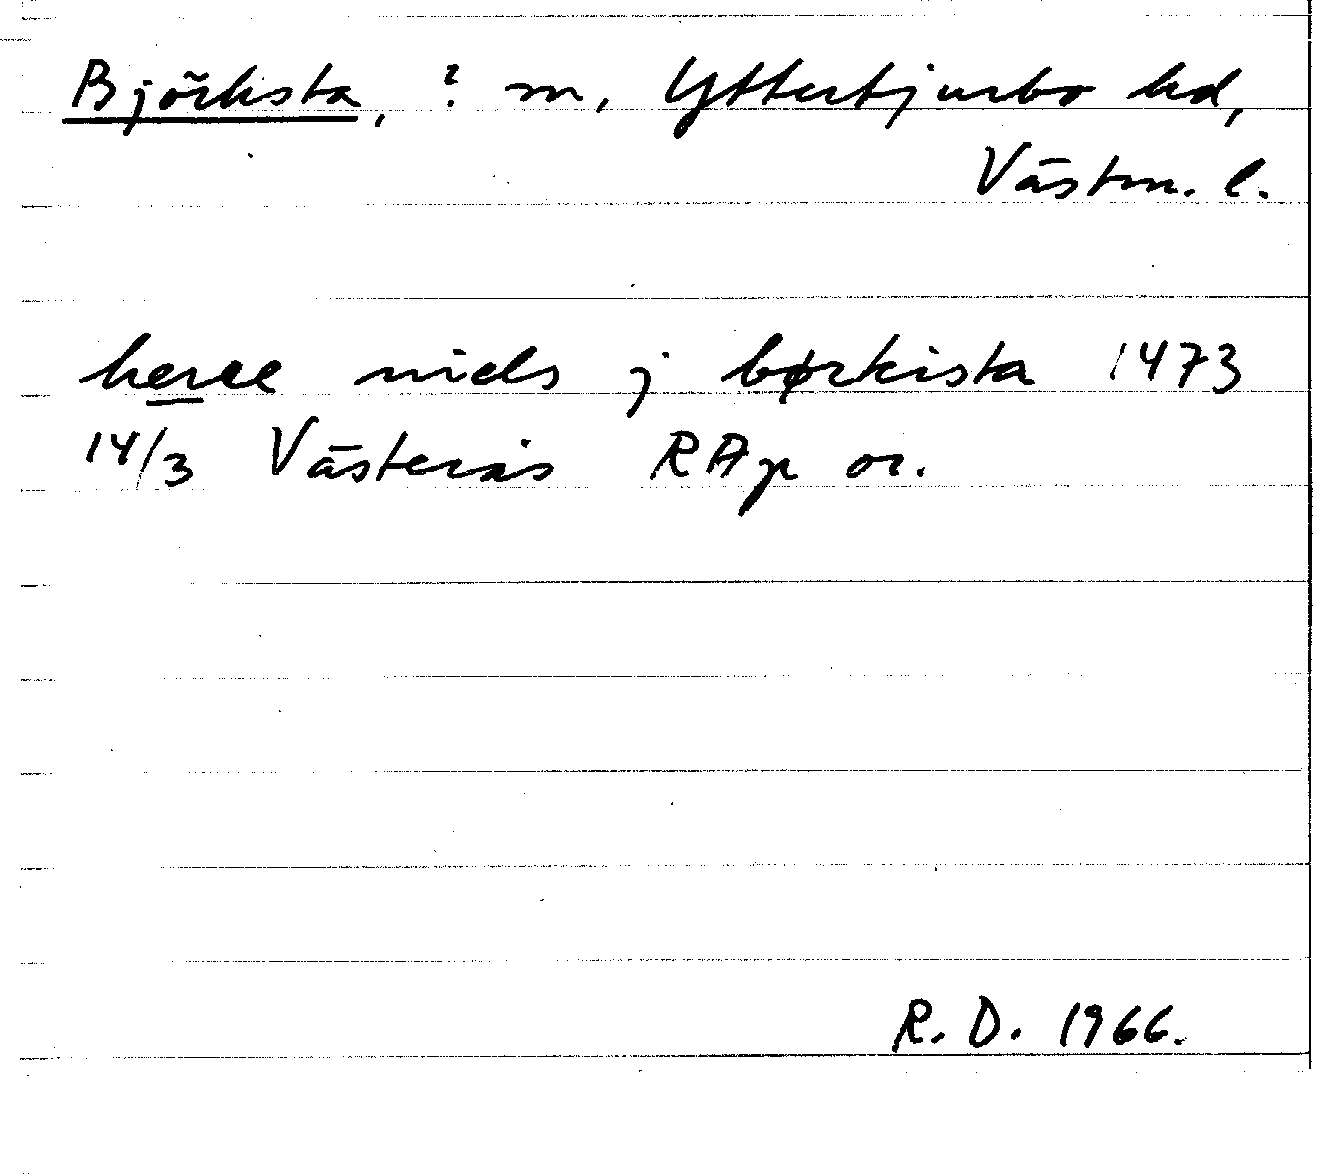 Björksta, ? m, Yttertjurbo hd,
Västm. l.
herre niels j børkista 1473
14/3 Västerås RAp or.
R. D. 1966.